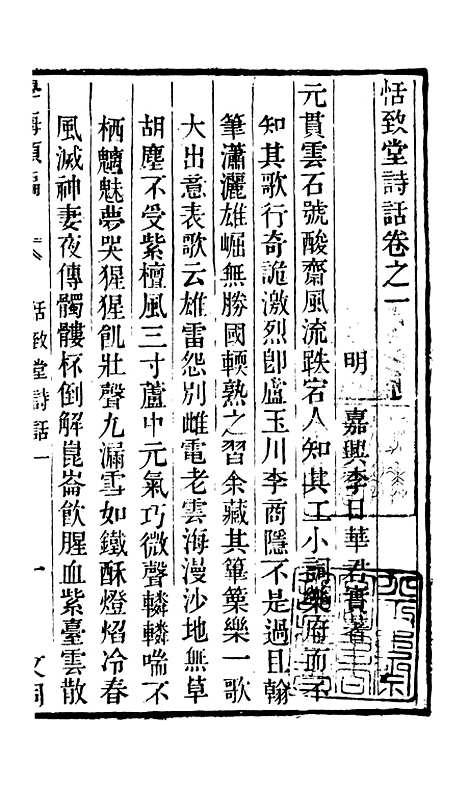 恬致堂詩話卷之一
明　嘉興李日華君實著
元貫雲石號酸齋風流跌宕人知其工小詞樂府而不
知其歌行奇詭激烈卽盧玉川李商隱不是過目翰
筆瀟灑雄崛無勝國輭熟之習余藏其篳篥樂一歌
大出意表歌云雄雷怨別雌電老雲海漫沙地無草
胡塵不受紫檀風三寸蘆中元氣巧微聲轔轔喘不
栖魑魅夢哭猩猩飢壯聲九漏雪如鐵酥燈焰冷春
風滅神妻夜傳髑髏杯倒解崑崙飮腥血紫臺雲散
學海類編　恬致堂詩話一　一